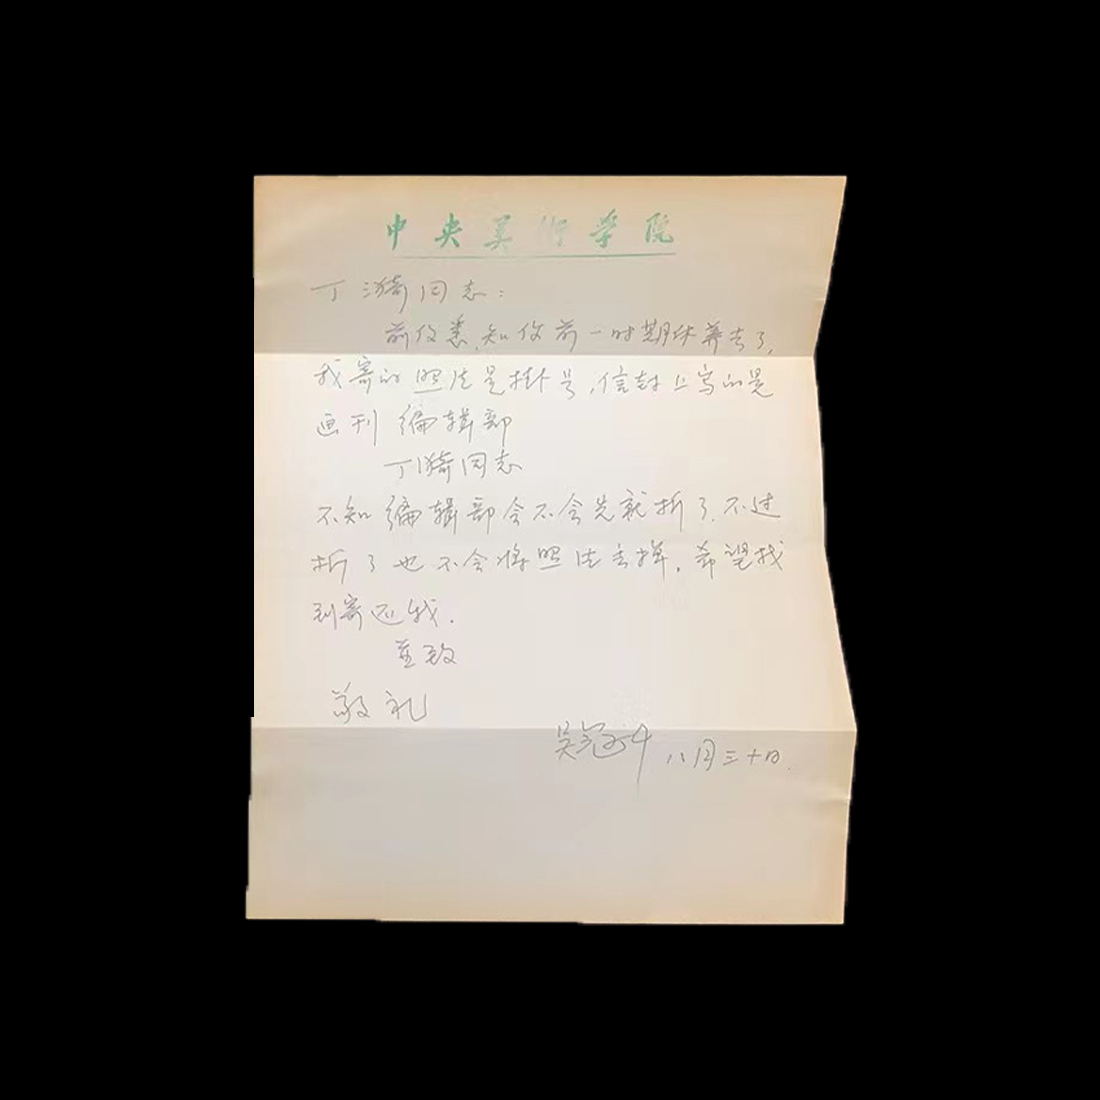 中央美術学院
丁漪同志：
前仅悉，知你前一时期休养去了，
我寄的照片是掛号，信封上写的是
画刊编辑部
丁漪同志
不知编辑部会不会先就拆了，不过
拆了也不会将照片丢掉，希望找
到寄还我．
並致
敬礼
吴冠中 八月三十日．